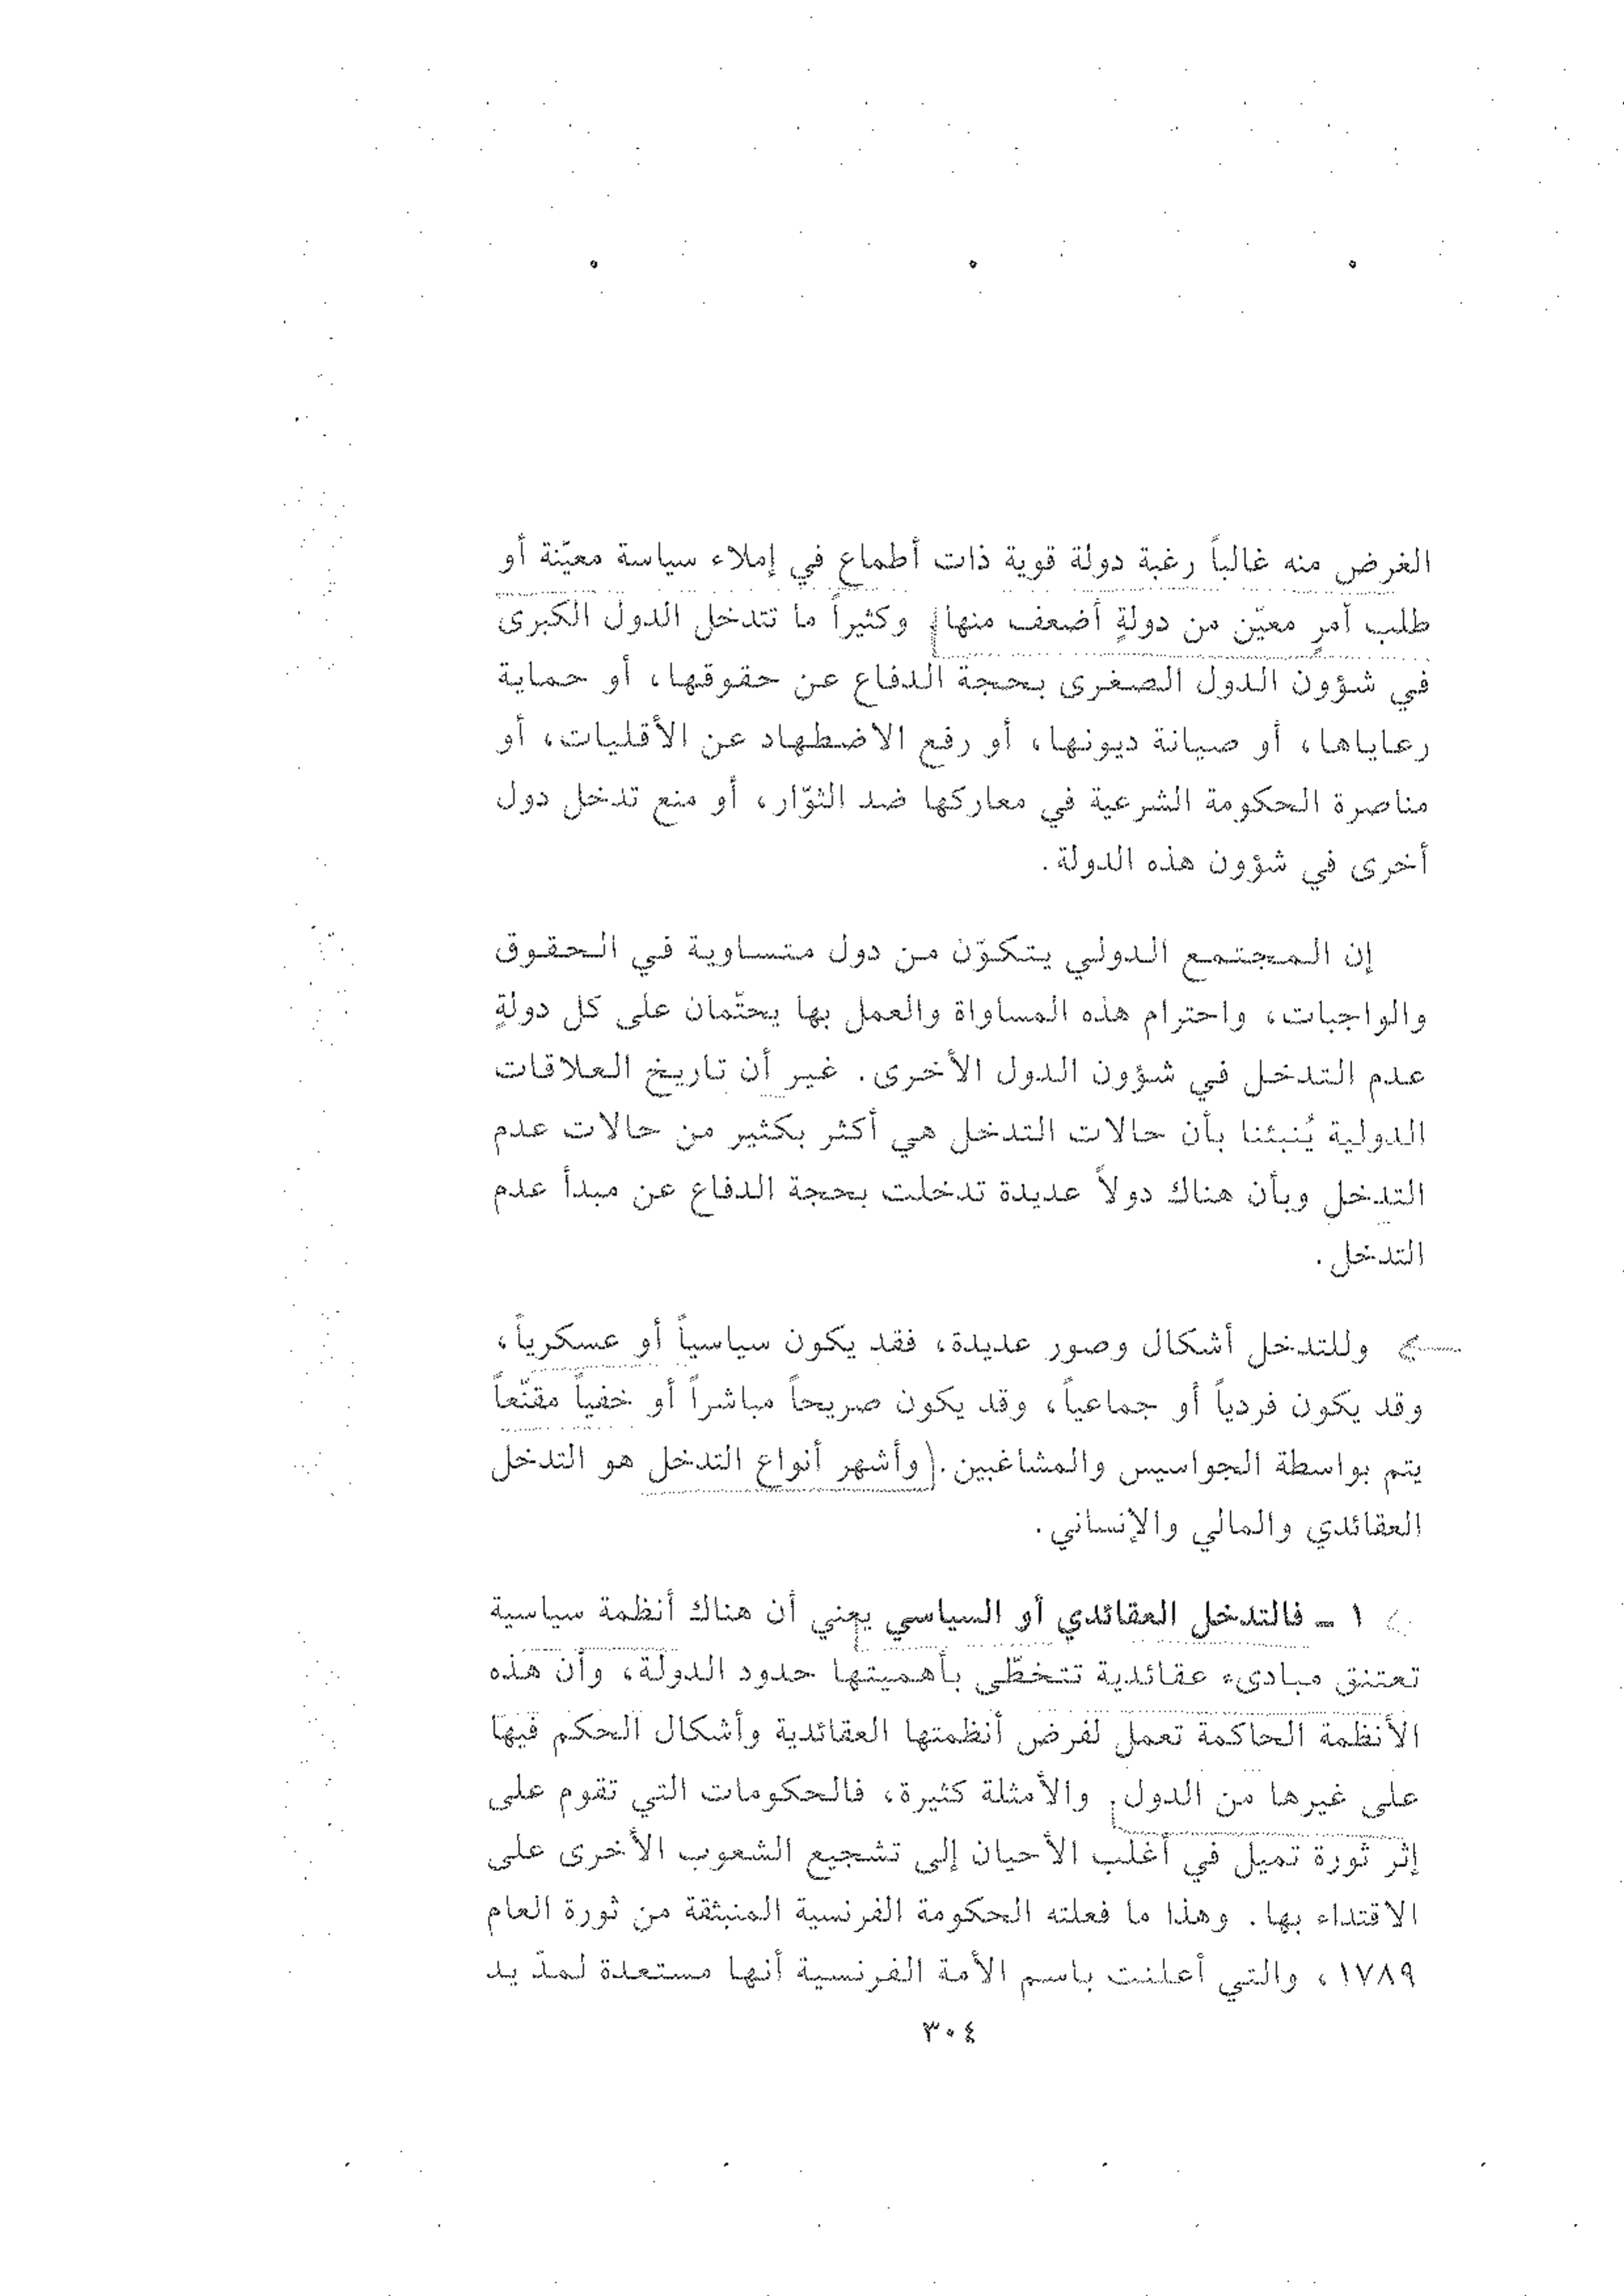 الغرض منه غالباً رغبة دولة قوية ذات أطماع في إملاء سياسة معيّنة أو
طلب أمرٍ معيّن من دولةٍ أضعف منها. وكثيراً ما تتدخل الدول الكبرى
في شؤون الدول الصغرى بحجة الدفاع عن حقوقها، أو حماية
رعاياها، أو صيانة ديونها، أو رفع الاضطهاد عن الأقليات، أو
مناصرة الحكومة الشرعية في معاركها ضد الثوّار، أو منع تدخل دول
أخرى في شؤون هذه الدولة.
إن المجتمع الدولي يتكوّن من دول متساوية في الحقوق
والواجبات، واحترام هذه المساواة والعمل بها يحتّمان على كل دولةٍ
عدم التدخل في شؤون الدول الأخرى. غير أن تاريخ العلاقات
الدولية يُنبئنا بأن حالات التدخل هي أكثر بكثير من حالات عدم
التدخل وبأن هناك دولاً عديدة تدخلت بحجة الدفاع عن مبدأ عدم
التدخل.
وللتدخل أشكال وصور عديدة، فقد يكون سياسياً أو عسكرياً،
وقد يكون فردياً أو جماعياً، وقد يكون صريحاً مباشراً أو خفياً مقنّعاً
يتم بواسطة الجواسيس والمشاغبين. وأشهر أنواع التدخل هو التدخل
العقائدي والمالي والإنساني.
١ - فالتدخل العقائدي أو السياسي يعني أن هناك أنظمة سياسية
تعتنق مبادىء عقائدية تتخطّى بأهميتها حدود الدولة، وأن هذه
الأنظمة الحاكمة تعمل لفرض أنظمتها العقائدية وأشكال الحكم فيها
على غيرها من الدول. والأمثلة كثيرة، فالحكومات التي تقوم على
إثر ثورة تميل في أغلب الأحيان إلى تشجيع الشعوب الأخرى على
الاقتداء بها. وهذا ما فعلته الحكومة الفرنسية المنبثقة من ثورة العام
١٧٨٩، والتي أعلنت باسم الأمة الفرنسية أنها مستعدة لمدّ يد
٣٠٤